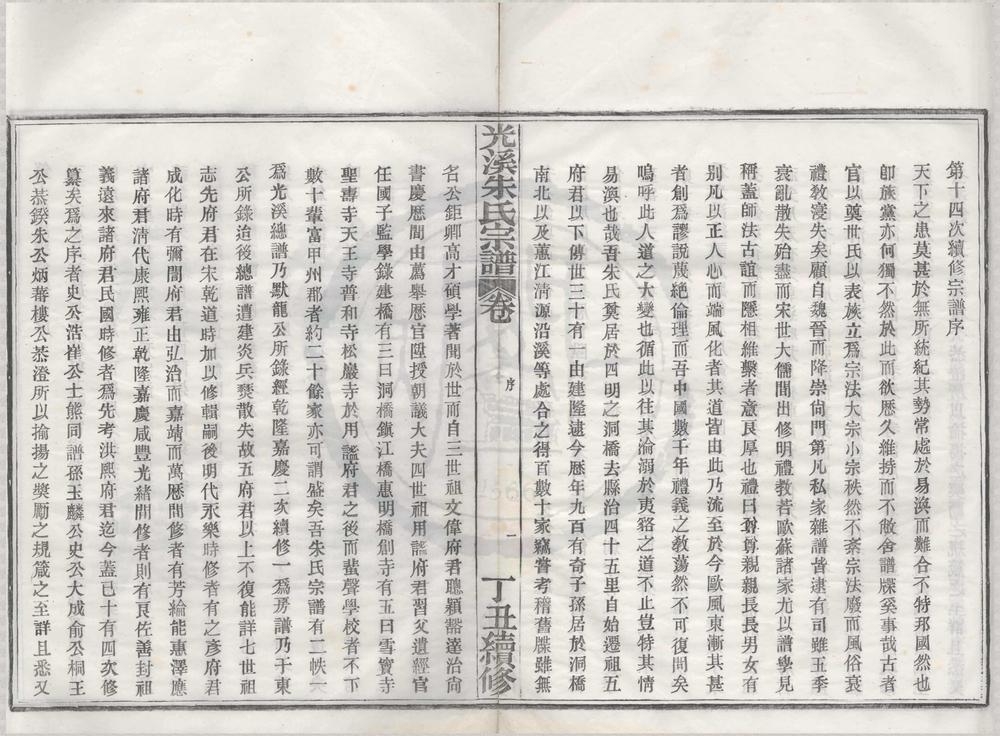 第十四次續修宗譜序
天下之患莫甚於無所統紀其勢常處於易渙而難合不特邦國然也
卽族黨亦何獨不然於此而欲歷久維持而不敝舍譜牒奚事哉古者
官以奠世氏以表族立爲宗法大宗小宗秩然不紊宗法廢而風俗衰
禮敎寖失矣顧自魏晉而降崇尙門第凡私家雜譜皆逮有司雖五季
衰亂散失殆盡而宋世大儒間出修明禮教若歐蘇諸家尤以譜學見
稱蓋師法古誼而隱相維繫者意良厚也禮曰尊尊親親長長男女有
別凡以正人心而端風化者其道皆由此乃流至於今歐風東漸其甚
者創爲謬說蔑絕倫理而吾中國數千年禮義之敎蕩然不可復問矣
嗚呼此人道之大變也循此以往其淪溺於夷貉之道不止豈特其情
易渙也哉吾朱氏奠居於四明之洞橋去縣治四十五里自始遷祖五
府君以下傳世三十有一由建隆逮今歷年九百有奇子孫居於洞橋
南北以及蕙江清源沿溪等處合之得百數十家竊嘗考稽舊牒雖無
光溪朱氏宗譜卷
序
一
丁丑續修
名公鉅卿高才碩學著聞於世而自三世祖文偉府君聰穎豁達治尙
書慶歷間由薦舉歷官陞授朝議大夫四世祖用謐府君習父遺經官
任國子監學錄建橋有三曰洞橋鎮江橋惠明橋創寺有五曰雪竇寺
聖壽寺天王寺普和寺松巖寺於用謐府君之後而蜚聲學校者不下
數十輩富甲州郡者約二十餘家亦可謂盛矣吾朱氏宗譜有二帙一
爲光溪總譜乃默龍公所錄經乾隆嘉慶二次續修一爲房譜乃于東
公所錄迨後總譜遭建炎兵燹散失故五府君以上不復能詳七世祖
志先府君在宋乾道時加以修輯嗣後明代永樂時修者有之彥府君
成化時有彌閏府君由弘治而嘉靖而萬歷間修者有芳綸能惠澤應
諸府君清代康熙雍正乾隆嘉慶咸豐光緒間修者則有良佐善封祖
義遠來諸府君民國時修者爲先考洪熙府君迄今蓋已十有四次修
纂矣爲之序者史公浩崔公士熊同譜孫玉麟公史公大成俞公桐王
公恭鍨朱公炳蕃樓公恭澄所以揄揚之獎勵之規箴之至詳且悉又